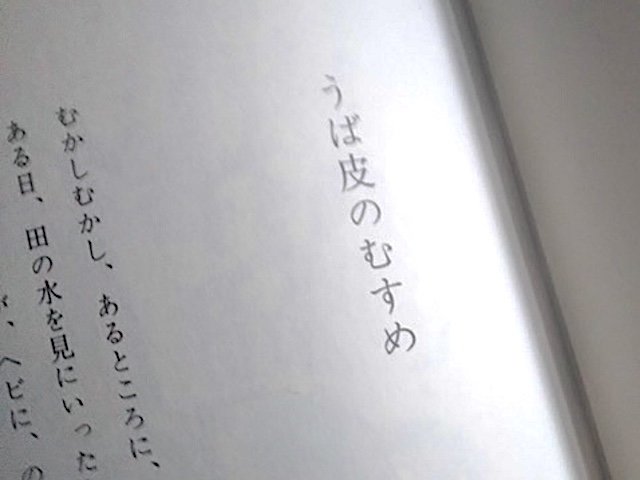 うば皮のむすめ
むかしむかし、あるところに、
ある日、田の水を見にいった
が、ヘビに、の